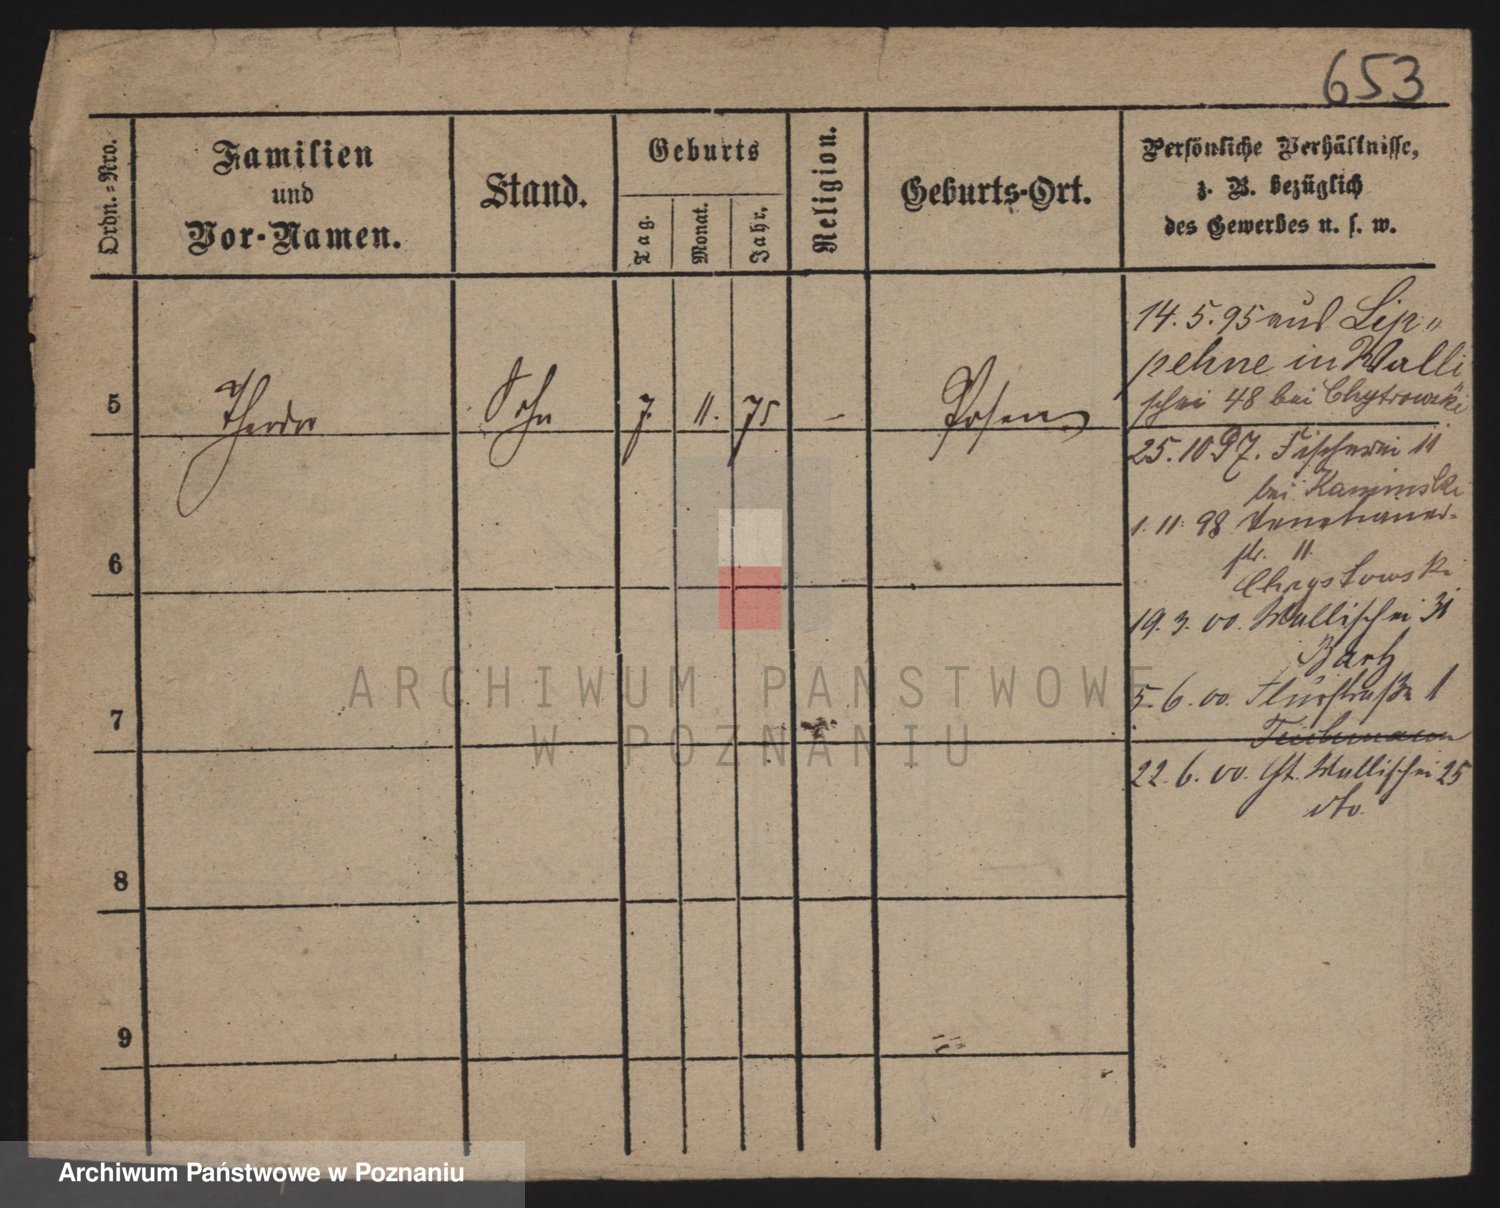 653
Ordn.-Nro.
Familien
und
Vor-Namen.
Stand.
Geburts
Tag.
Monat.
Jahr.
Religion.
Geburts-Ort.
Persönliche Verhältnisse,
z. B. bezüglich
des Gewerbes u. s. w.
5 Theodor Sohn 7. 11. 75 – Posen
14. 5. 95 aus Lip„
pehne in Walli
schei 48 bei Chytrowski
25. 10. 97. Fischerei 11
bei Kaminski
1. 11. 98 Venetianer-
str. 11.
19. 3. 00. Wallischei 31
5. 6. 00. Flurstraße 1
22. 6. 00. Wallischei 25
dto.
6
7
8
9
ARCHIWUM PAŃSTWOWE
W POZNANIU
Archiwum Państwowe w Poznaniu